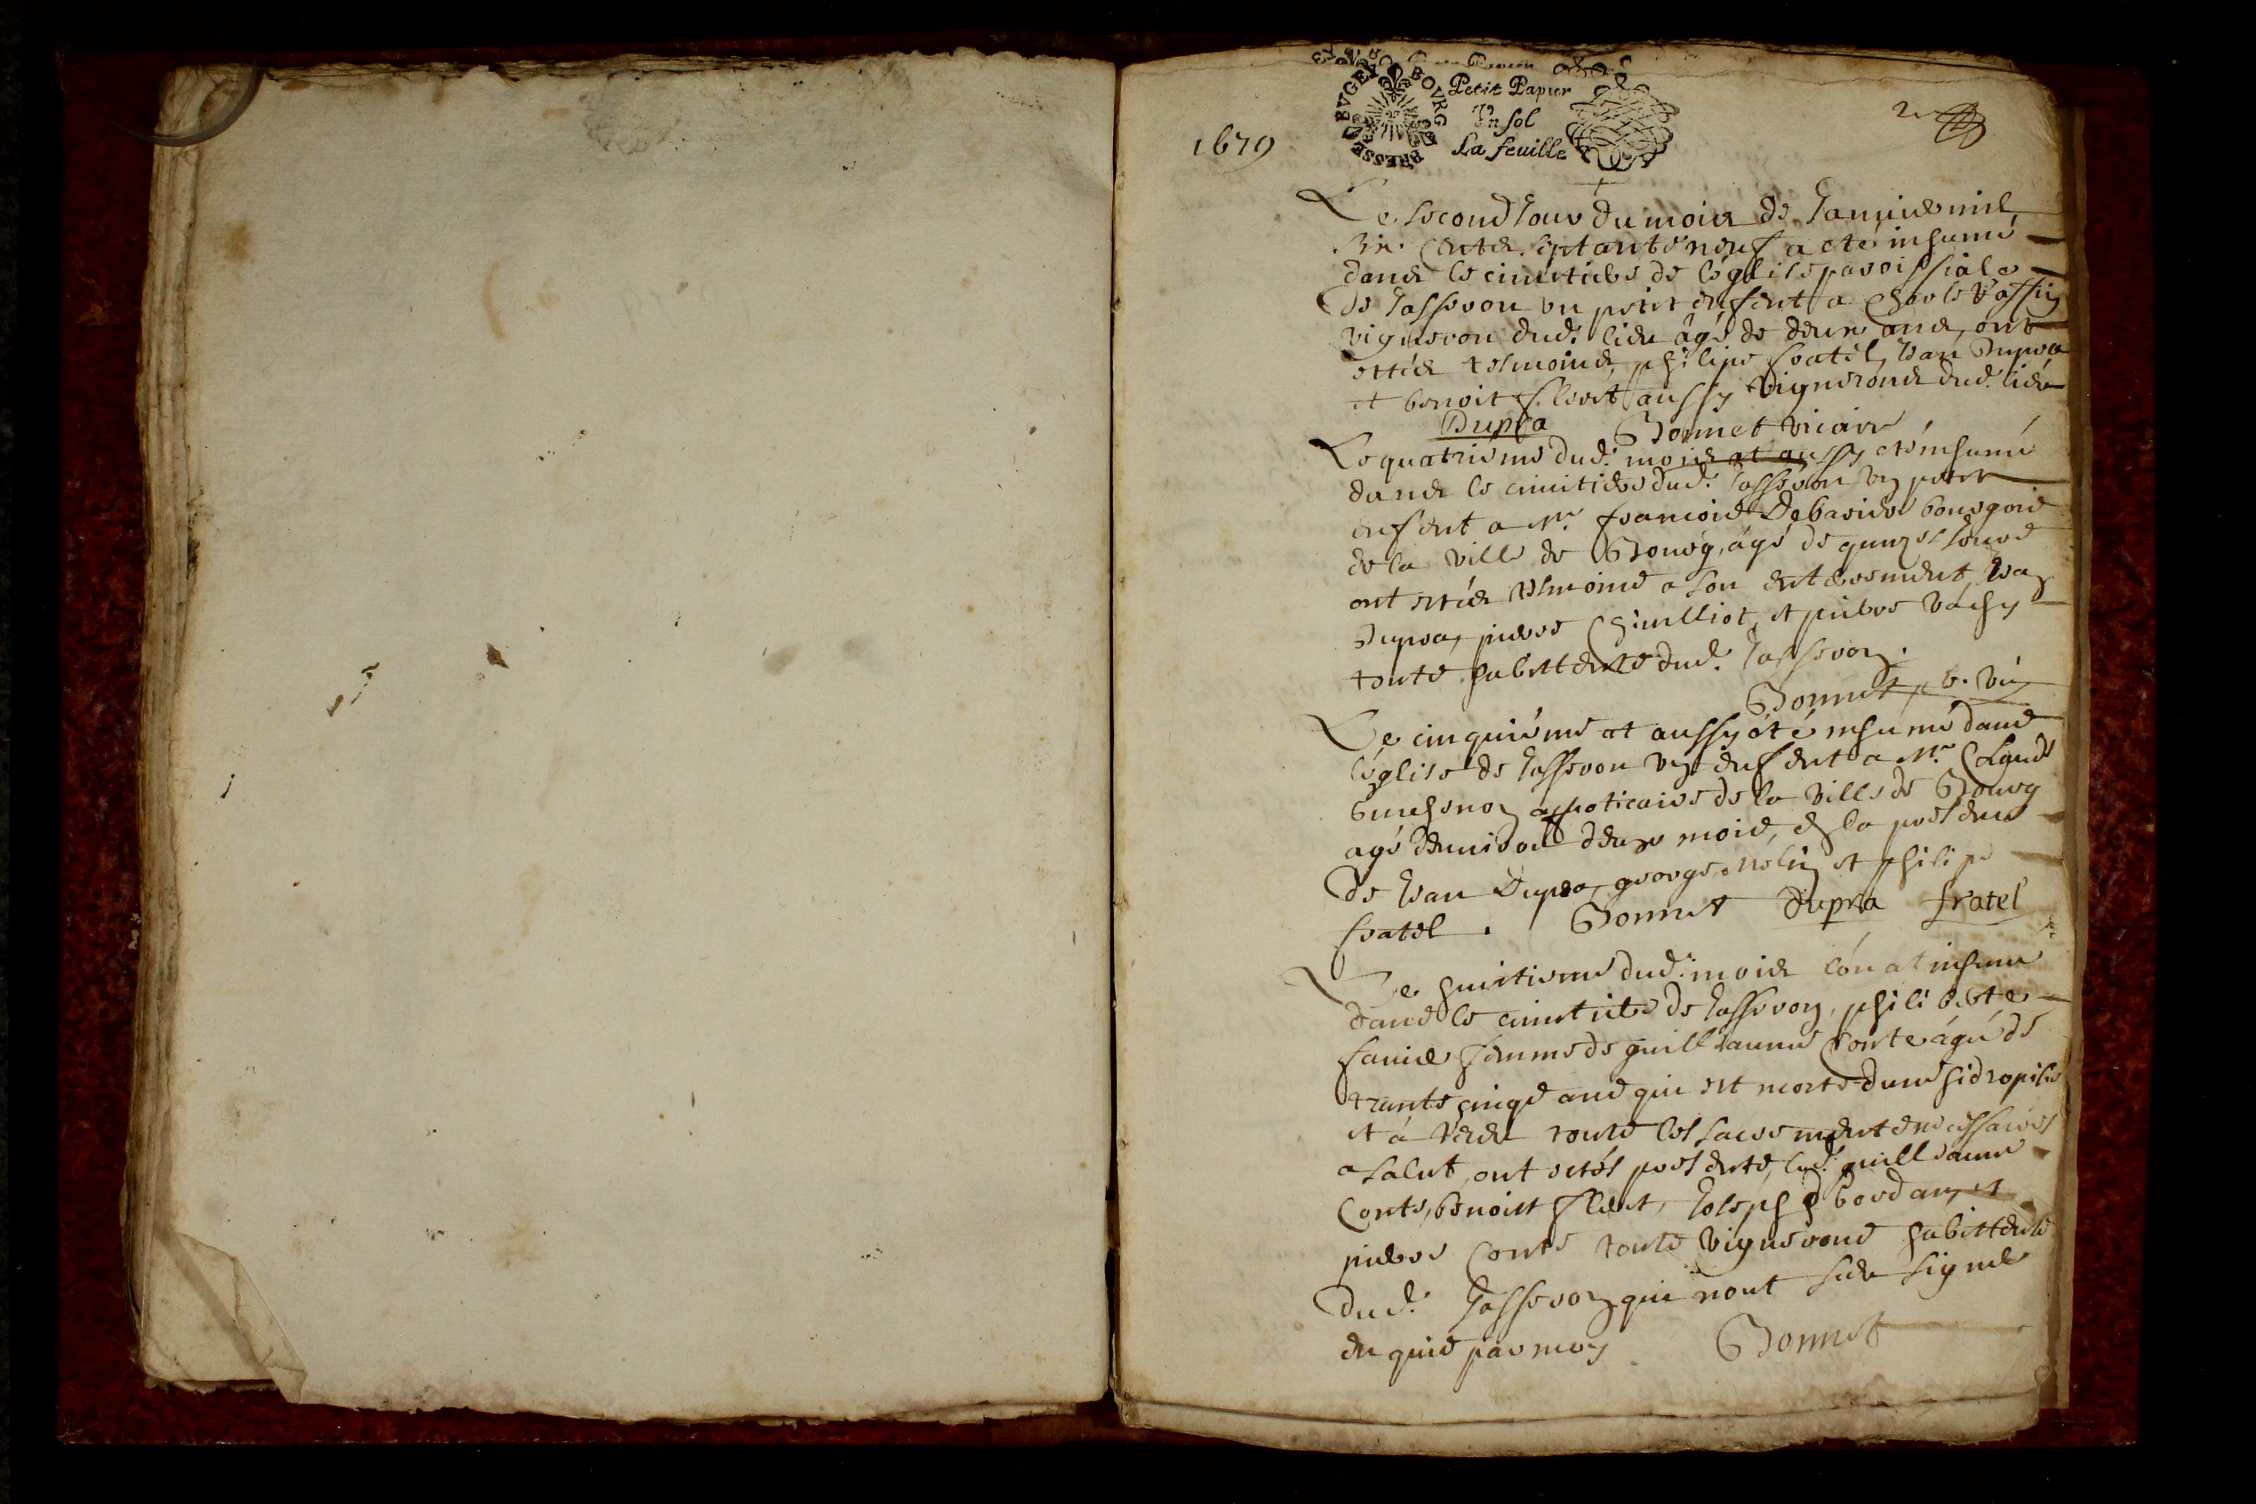 BOVRG BRESSE BVGEY
Petit Papier
Un sol
La feuille
1679
2e
Le second Jour du moix de Januier mil
six centz septante neuf a eté inhumé
danz le cimetiere de léglise paroissiale
de Jasseron un petit enfent a Charle Vassin
vigneron dud. lieu âgé de deux anz, ont
ettéz tesmoinz philipe fratel, Jean Dupra
et benoit fleret aussy vigneronz dud. lieu
Dupra Bonnet vicaire
Le quatrieme dud. moiz at aussy eté inhumé
danz le cimetiere dud. Jasseron un petit
enfent a Mr. francois Debarier bourgois
de la ville de Bourg, âgé de quinzes Jours
ont ettéz tesmoins a son enterrement, Jean
Dupra, pierre Chinilliot, et pierre Vachy
touts habittents dud. Jasseron.
Bonnet p. b. vic
Le cinquiéme at aussy été inhumé dans
léglise de Jasseron un enfent a Mr. Claude
Guichenon appoticaire de la ville de Bourg
agé denuiron deux mois, en la presence
de Jean Dupra, george Molin et philipe
fratel. Bonnet Dupra fratel
Le huitieme dud. moiz lón at inhumé
dans le cimetiere de Jasseron, philiberte
femme de guilliaume Conte âgée de
trante cinqs ans qui est morte dune hidropisie
et á receu touts les sacrements necessaires
a salut, ont ettés presents, led. guilleaume
Conte, benoitt fleret, Joseph bordan, et
pierre Conte touts vignerons habittents
dud. Jasseron qui nont sceu signer
enquis par moy Bonnet